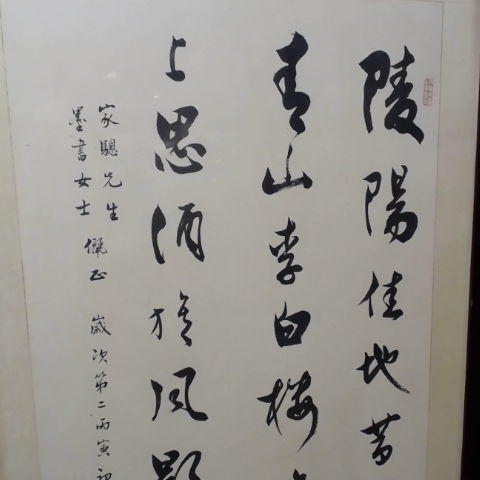 陵陽佳地昔
青山李白楼
上思酒旆风
家驄先生
墨書女士 儷正 歲次第二丙寅初